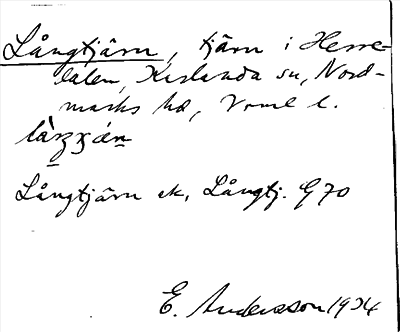 Långtjärn, tjärn i Herre-
lälen, Karlanda sn, Nord-
marks hd, Vrml l.
Långtjärn ek, Långtj. G 70
E. Andersson 1934